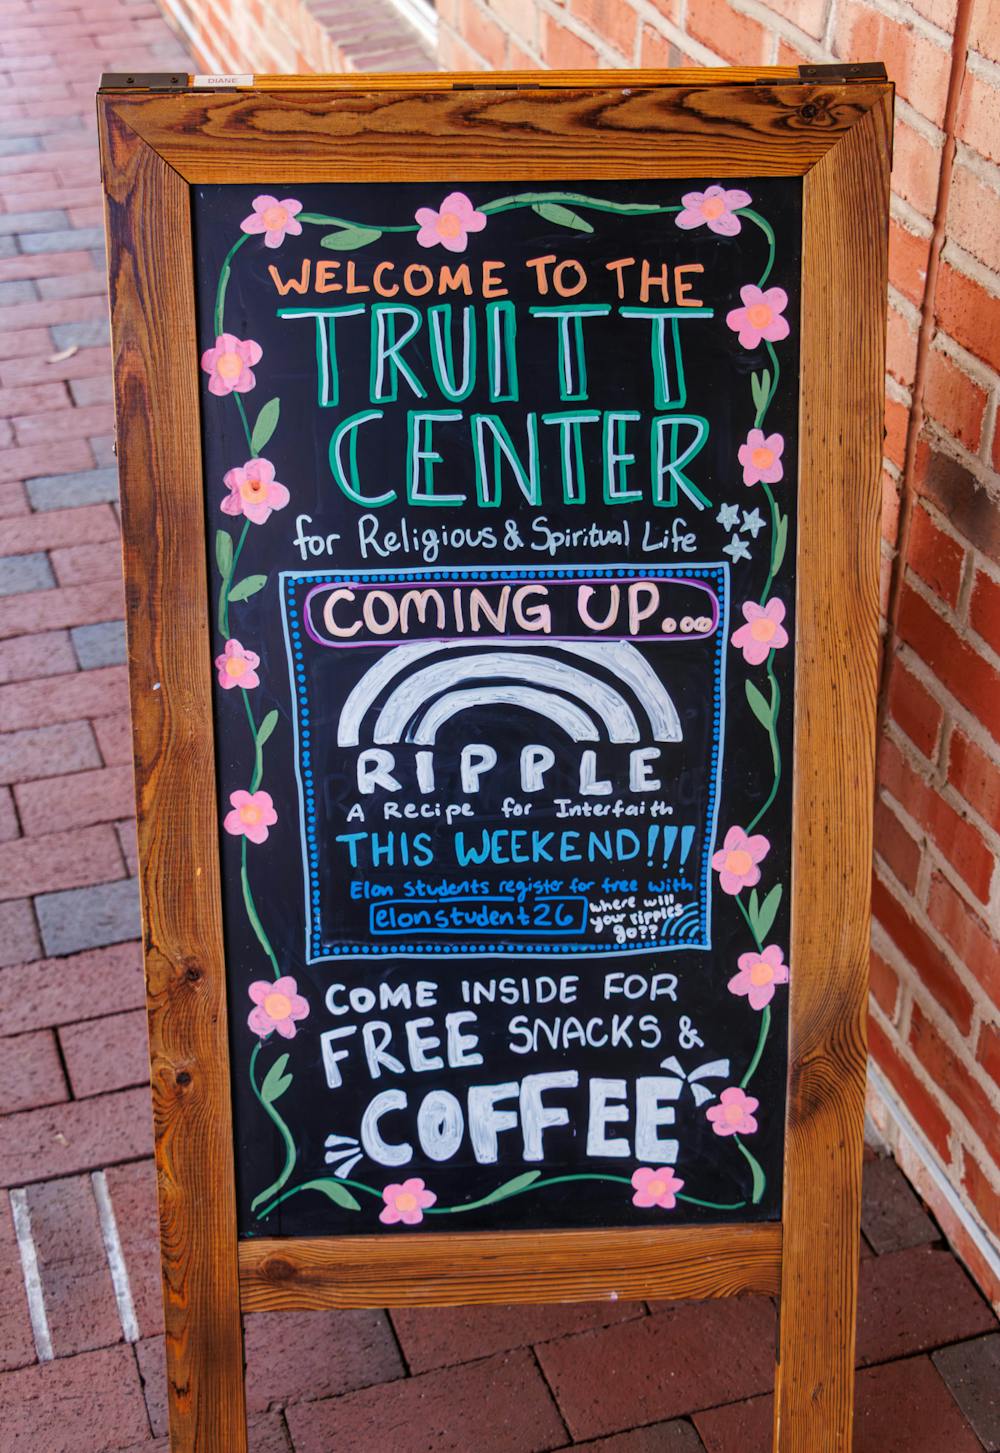 DIANE
WELCOME TO THE
TRUITT
CENTER
for Religious & Spiritual Life
COMING UP...
RIPPLE
A Recipe for Interfaith
THIS WEEKEND!!!
Elon students register for free with
elonstudent26
where will
your ripples
go??
COME INSIDE FOR
FREE SNACKS &
COFFEE